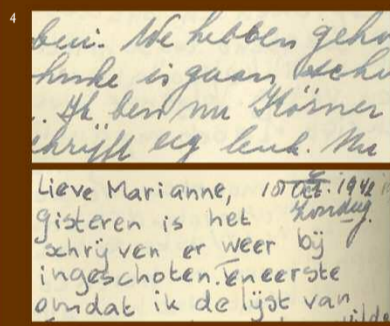 4
ben. We hebben geho
hnke is gaan scha
. Ik ben nu Körner
chrijft erg leuk. Nu
Lieve Marianne, 18 Oct. 1942
Zondag.
gisteren is het
schrijven er weer bij
ingeschoten. Teneerste
omdat ik de lijst van